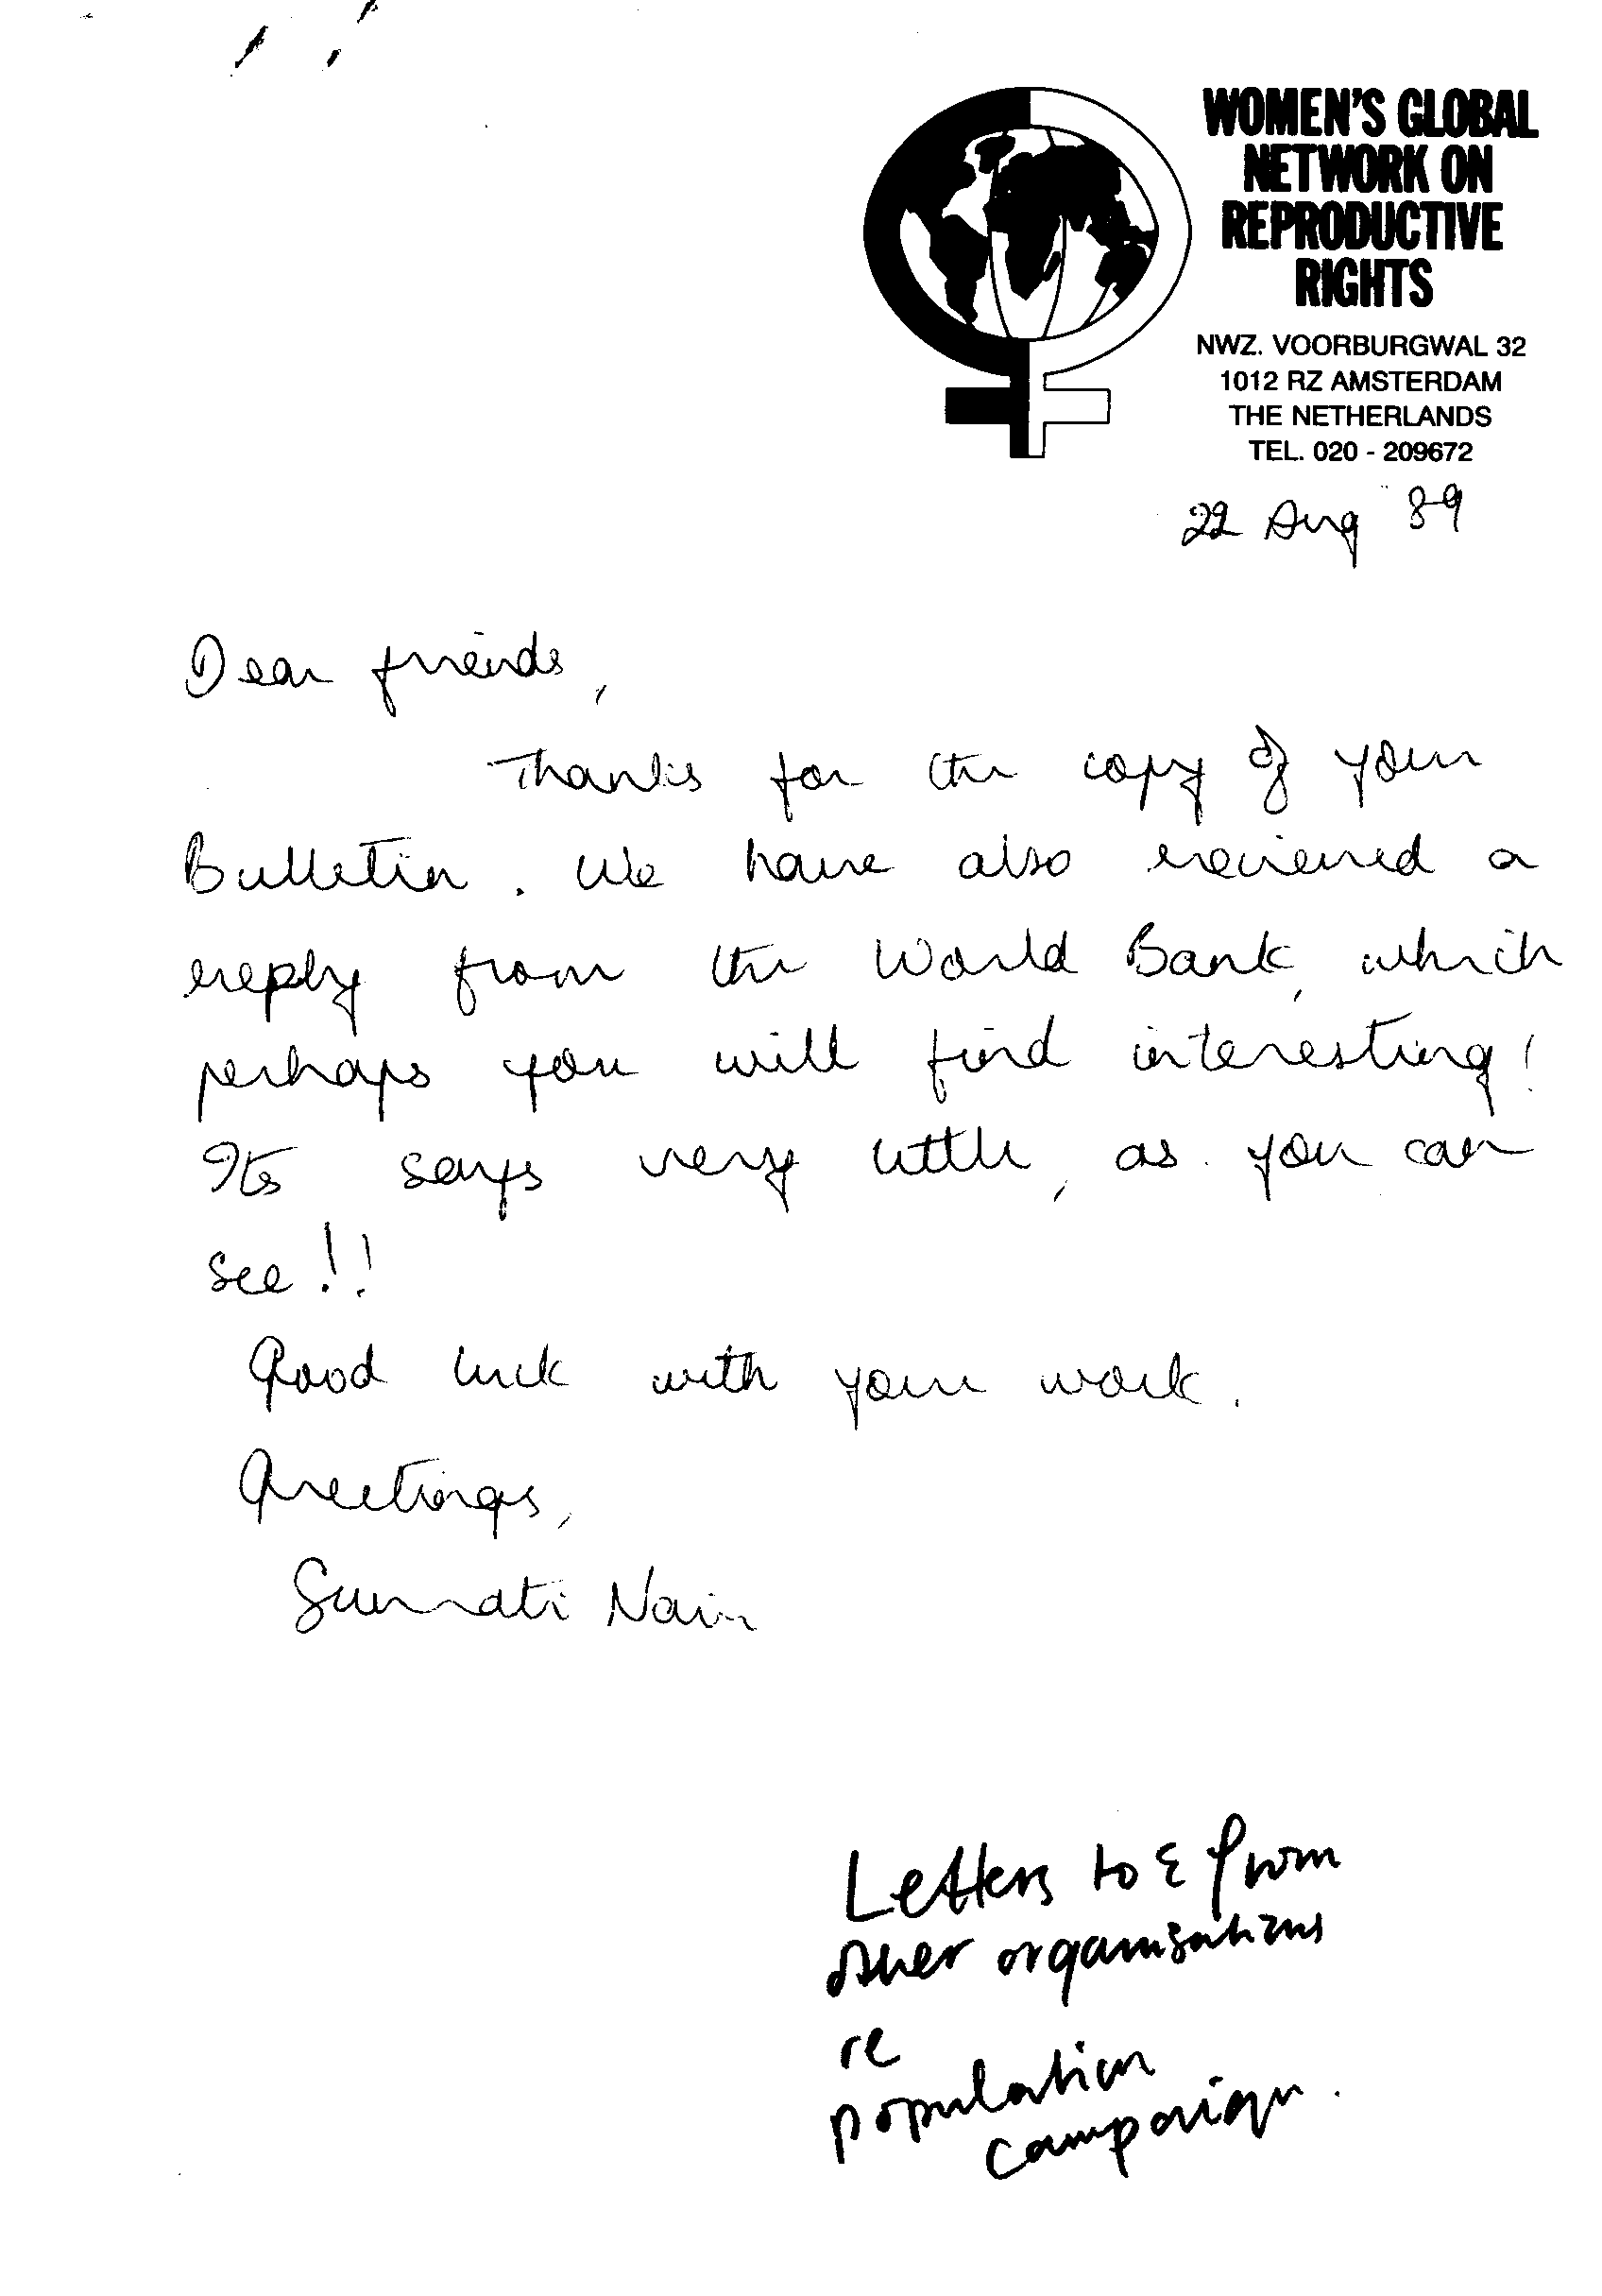 WOMEN'S GLOBAL
NETWORK ON
REPRODUCTIVE
RIGHTS
NWZ. VOORBURGWAL 32
1012 RZ AMSTERDAM
THE NETHERLANDS
TEL. 020 - 209672
22 Aug '89
Dear friends,
Thanks for the copy of your
Bulletin. We have also received a
reply from the World Bank, which
perhaps you will find interesting!
Its says very little, as you can
see!!
Good luck with your work.
Greetings,
Sumati Nair
Letters to & from
other organisations
re
population
campaign.